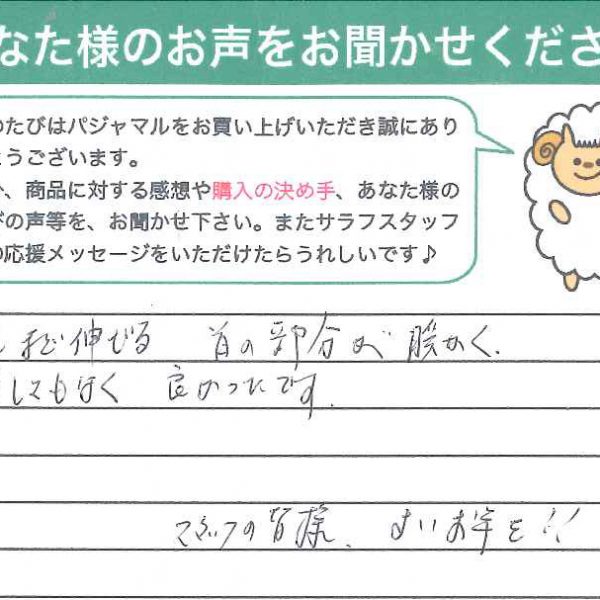 なた様のお声をお聞かせくださ
のたびはパジャマルをお買い上げいただき誠にあり
とうございます。
、商品に対する感想や購入の決め手、あなた様の
びの声等を、お聞かせ下さい。またサラフスタッフ
の応援メッセージをいただけたらうれしいです♪
まで伸びる 首の部分が 暖かく、
しても 良かったです.
スタッフの皆様、よいお年を!!